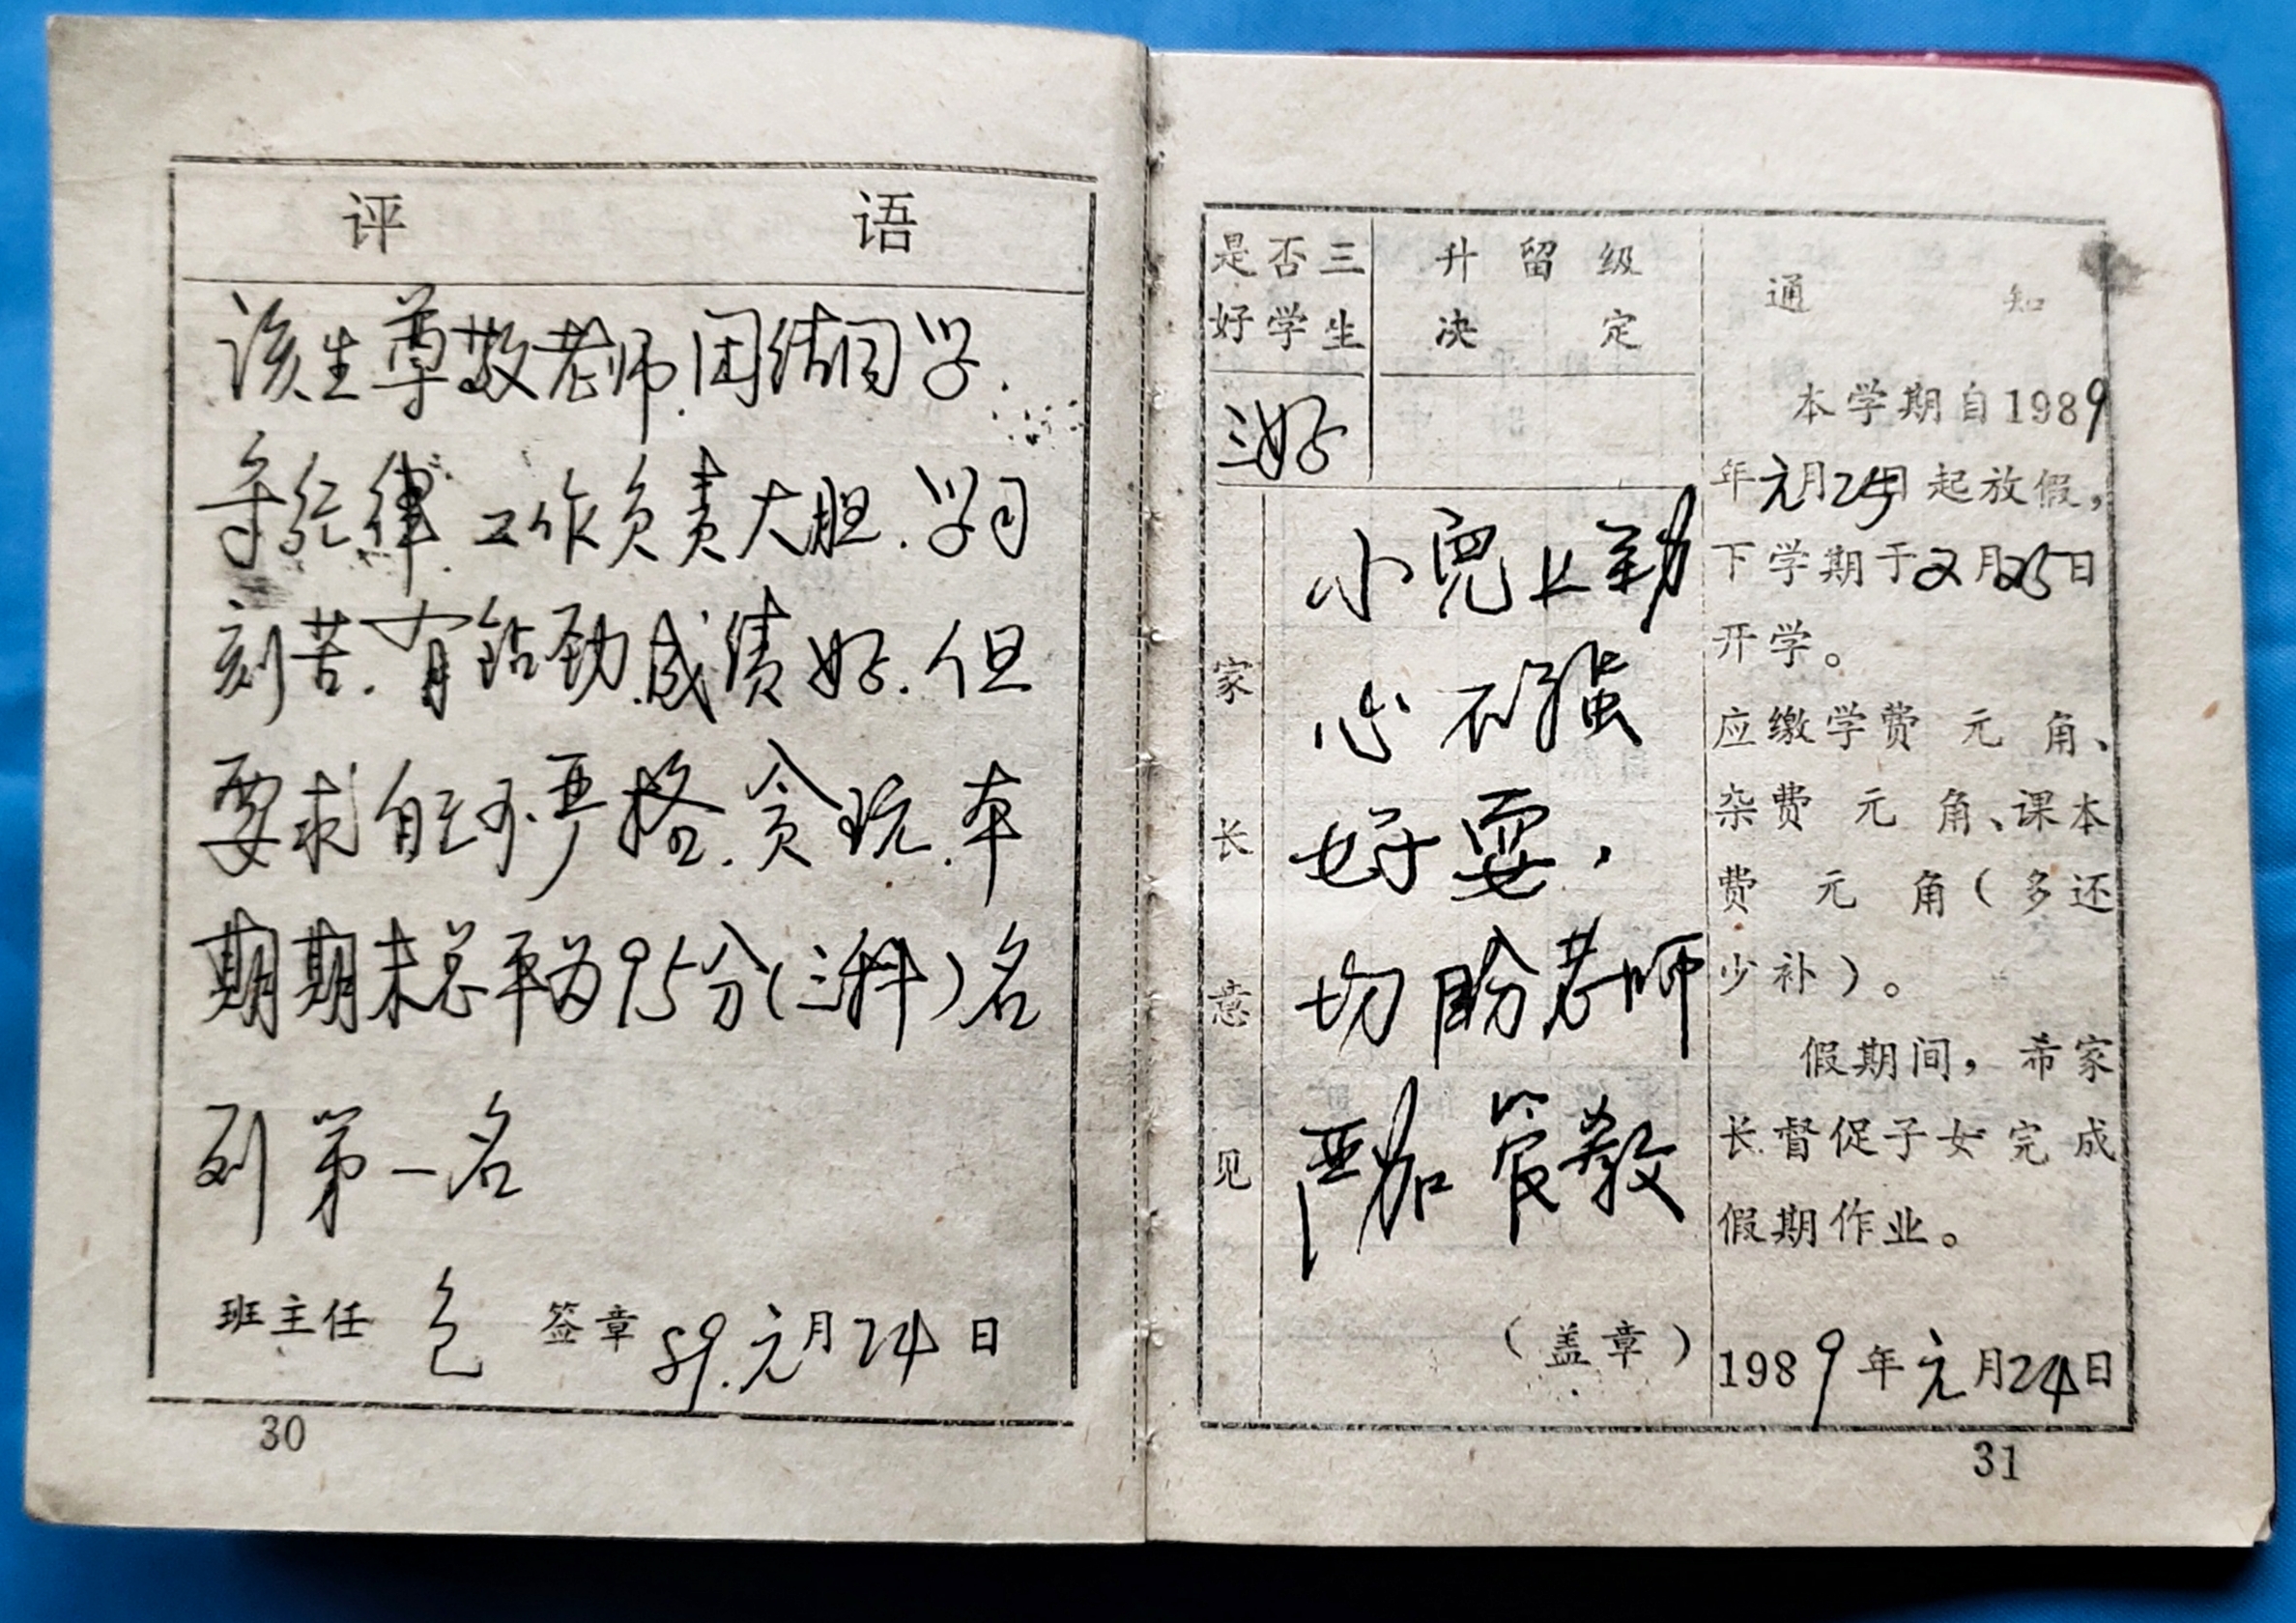 评 语
该生尊敬老师.团结同学.
守纪律.工作负责大胆.学习
刻苦.有钻劲.成绩好.但
要求自己不严格.贪玩.本
期期末总平为95分(三科)名
列第一名
班主任 包 签章 89.元月24日
30
是否三
好学生
三好
升留级
决定
家长意见
小儿上勤
心不强
好耍,
切盼老师
严加管教
(盖章)
通知
本学期自1989
年元月24日起放假,
下学期于2月25日
开学。
应缴学费 元 角、
杂费 元 角、课本
费 元 角(多还
少补)。
假期间,希家
长督促子女完成
假期作业。
1989年元月24日
31